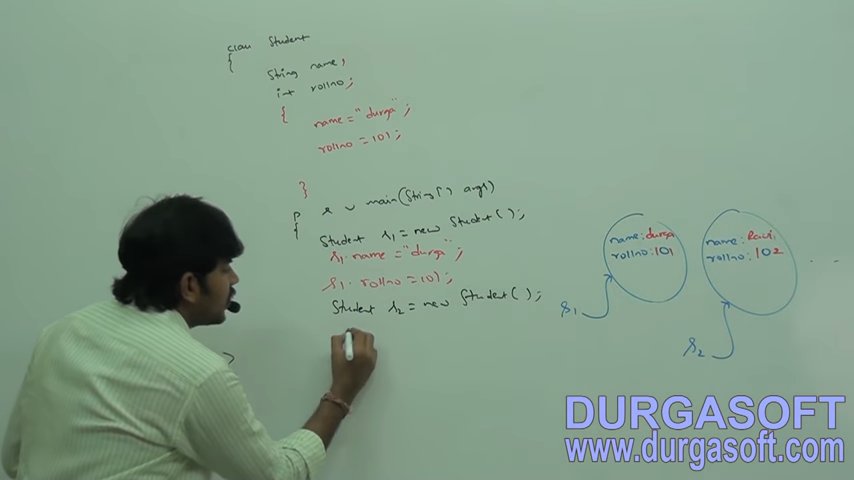 class Student
{
String name;
int rollno;
{
name="durga";
rollno=101;
}
p s v main(String[] args)
{
Student s1=new Student();
s1.name="durga";
s1.rollno=101;
Student s2=new Student();
name:durga
rollno:101
s1
name:Ravi
rollno:102
s2
. . .
DURGASOFT
www.durgasoft.com